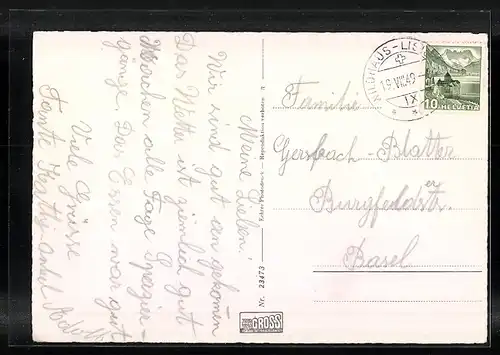 Meine Lieben!
Wir sind gut an gekomen
Das Wetter ist ziemlich gut
Machen alle Tage Spazier-
gänge, Das Essen war gut
Viele Grüsse
Tante Kathj
Echte Photodruck – Reproduktion verboten
Nr. 23473
GROSS
WILDHAUS-LIS
19. VII. 49
IX
10 HELVETIA
Familie
Gersbach-Blatter
Burgfelderstr.
Basel